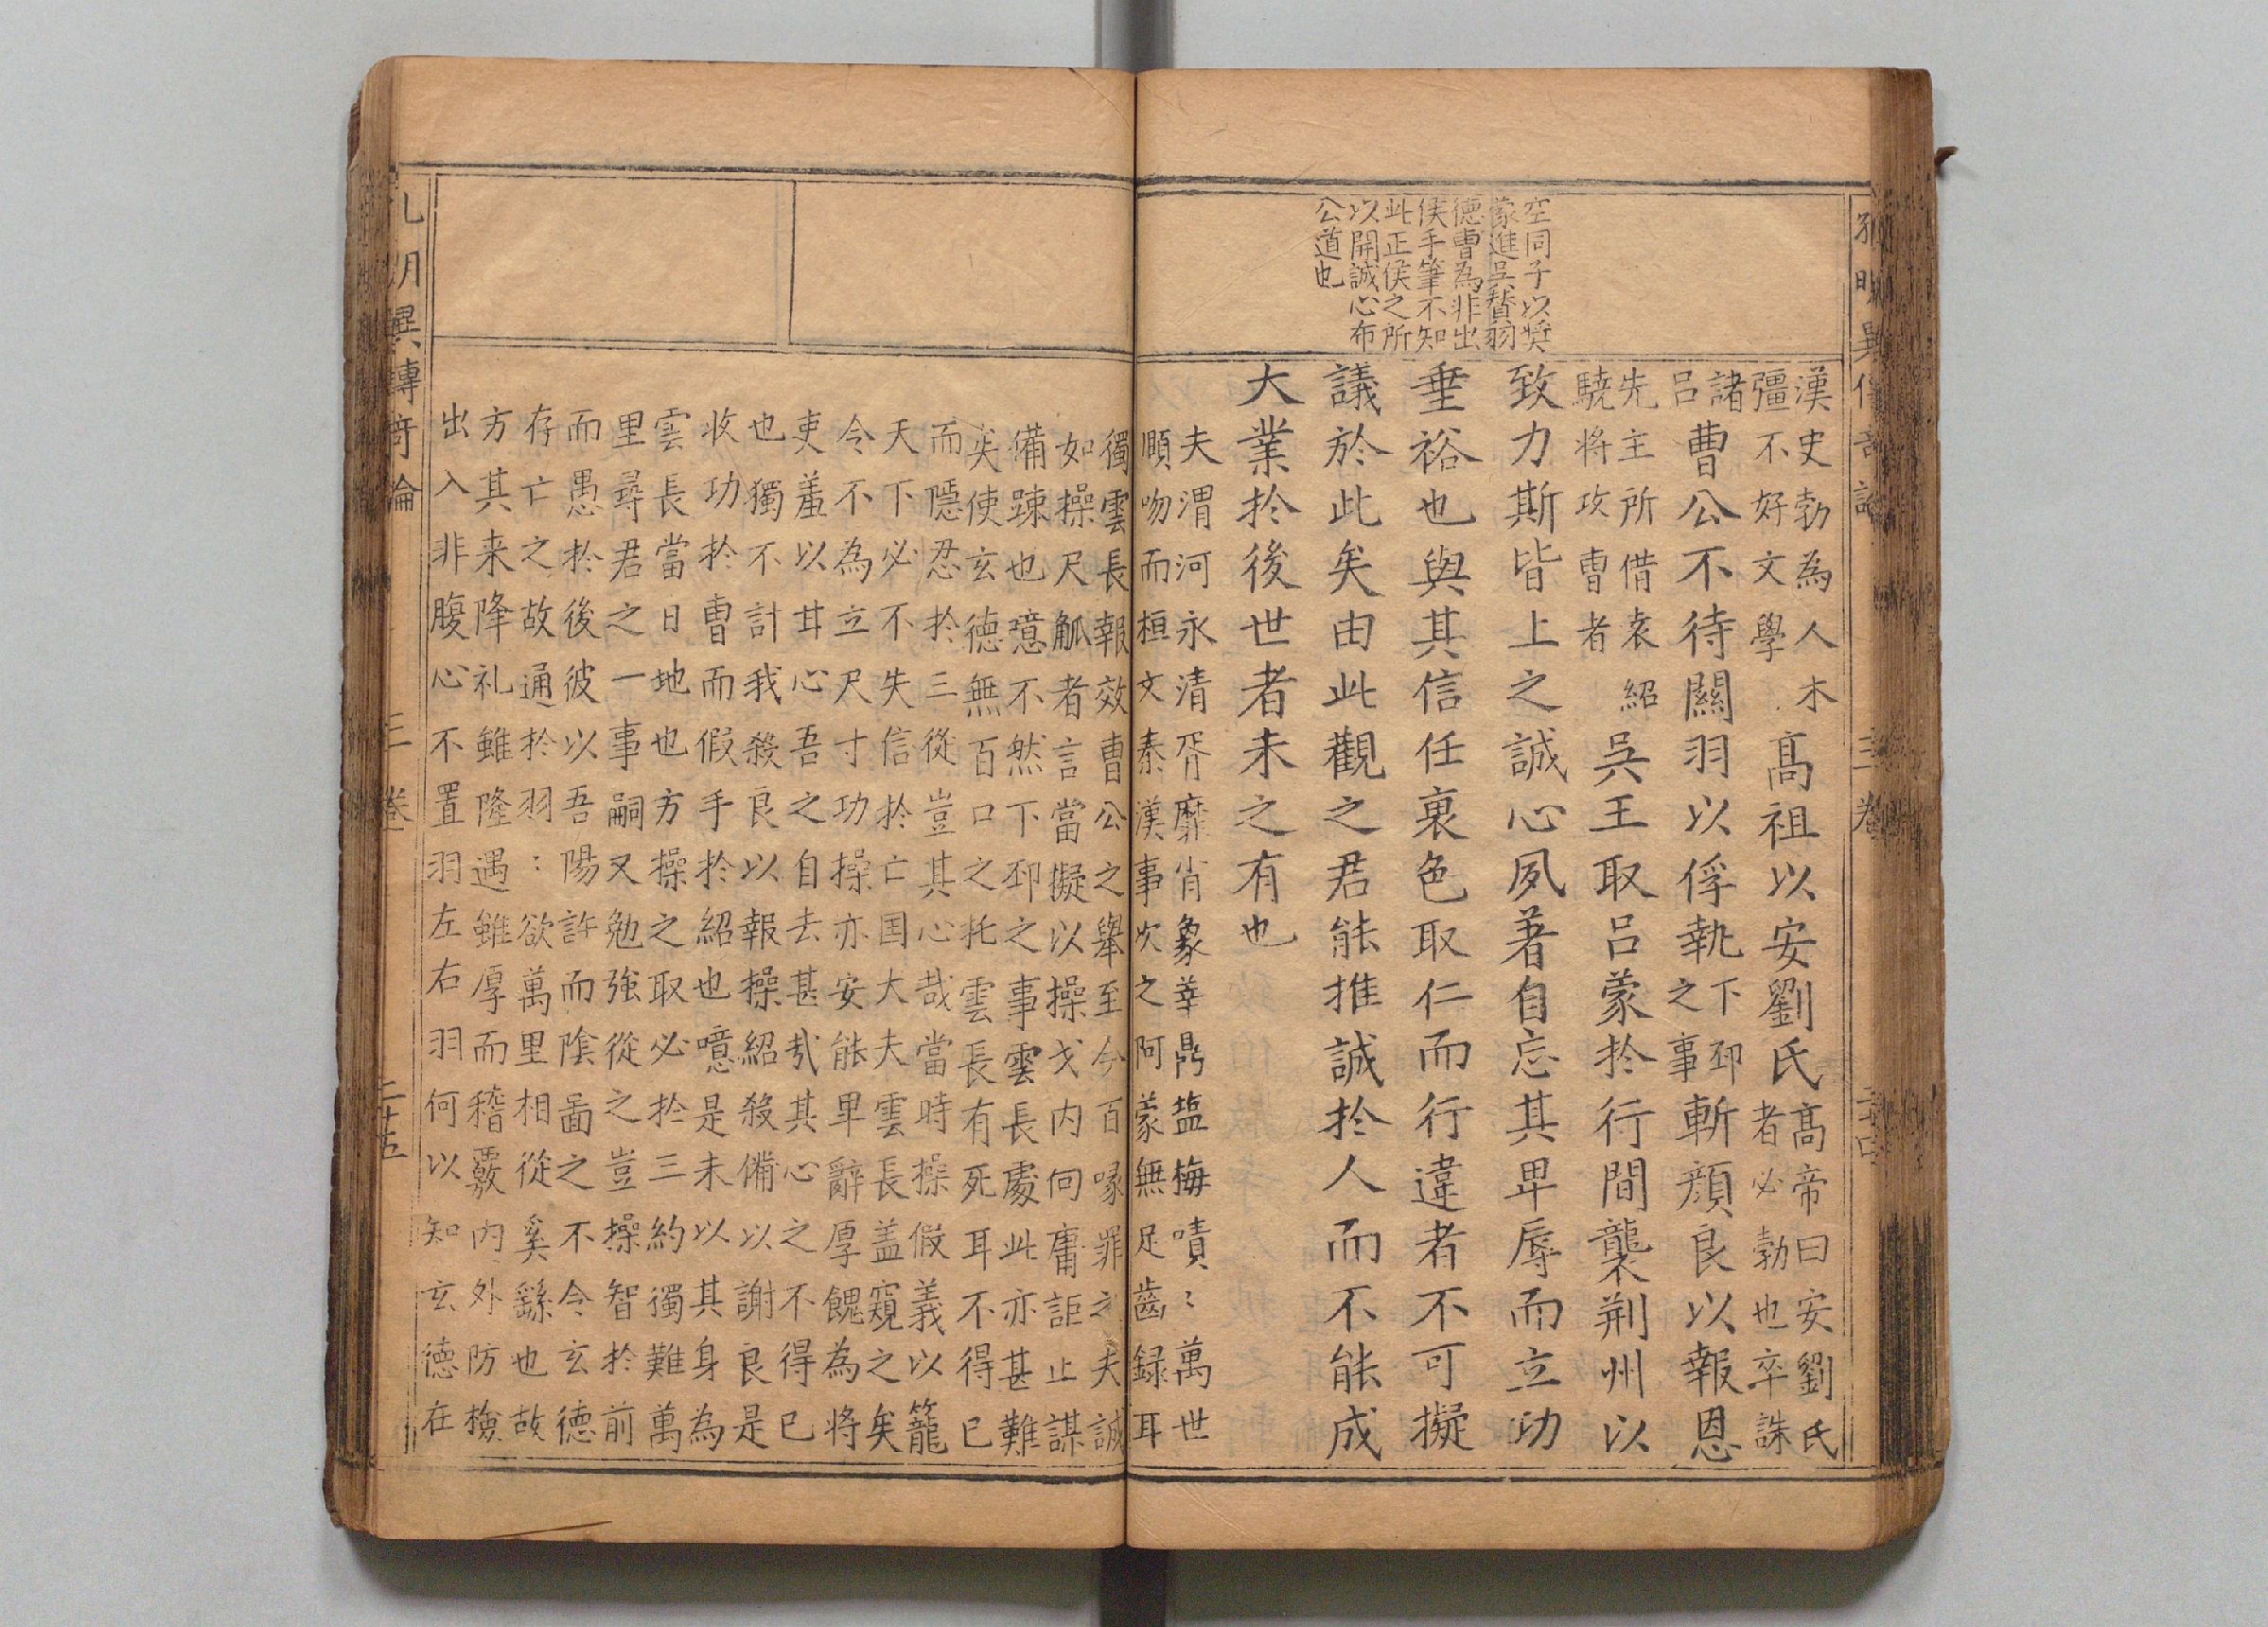 孔明異傳奇論 三卷 二十四
空同子以奬
蒙進吳賛羽
德曹為非出
侯手筆不知
此正侯之所
以開誠心布
公道也
漢史勃為人木彊不好文學高祖以安劉氏高帝曰安劉氏者必勃也卒誅
諸呂曹公不待關羽以俘執下邳之事斬顔良以報恩
先主所借袁紹驍将攻曹者吳王取呂蒙於行間襲荆州以
致力斯皆上之誠心夙著自忘其卑辱而立功
垂裕也與其信任裏色取仁而行違者不可擬
議於此矣由此觀之君能推誠於人而不能成
大業於後世者未之有也
夫渭河永清胥靡肖象莘鼎塩梅嘖〻萬世
頤吻而桓文秦漢事次之阿蒙無足齒録耳
獨雲長報效曹公之舉至今百喙罪之夫誠
如操尺觚者言當擬以操戈内向庸詎止謀
備踈也噫不然下邳之事雲長處此亦甚難
矣使玄德無百口之托雲長有死耳不得已
而隱忍於三從豈其心哉當時操假義以籠
天下必不失信於亡国大夫雲長盖窺之矣
今不為立尺寸功操亦安能卑辭厚餽為将
吏羞以甘心吾之自去甚哉其心之不得已
也獨不計我殺良以報操紹殺備以謝良是
收功於曹而假手於紹也噫是未以其身為
雲長當日地也方操之取必於三約獨難萬
里尋君之一事嗣又勉強從之豈操智於前
而愚於後彼以吾陽許而陰啚之不令玄德
存亡之故通於羽:欲萬里相從奚繇也故
方其来降礼雖隆遇雖厚而稽覈内外防檢
出入非腹心不置羽左右羽何以知玄德在
孔明異傳奇論 三卷 二十五